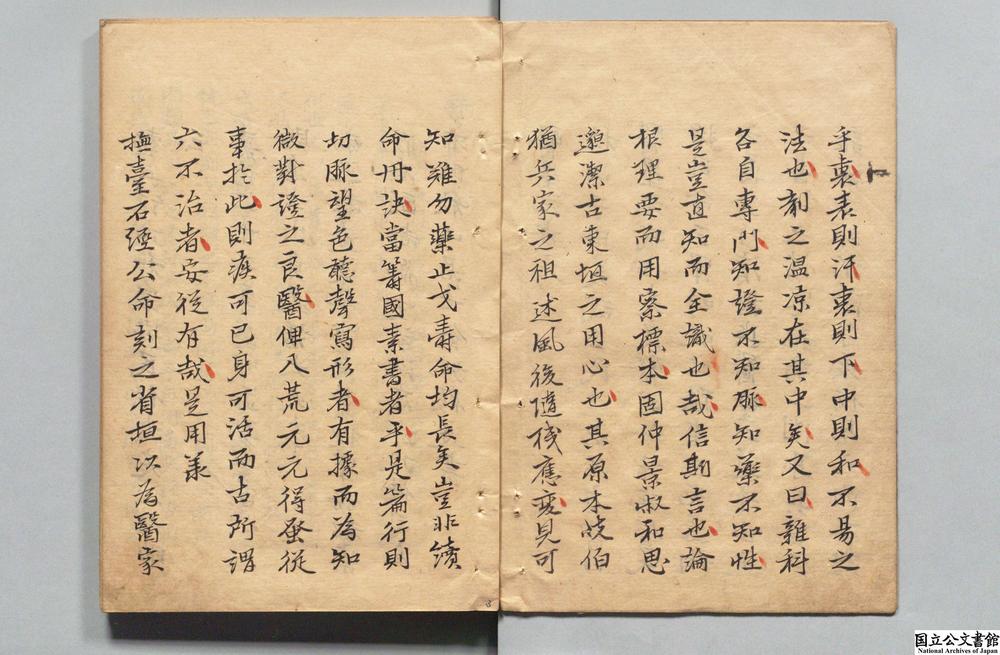 乎裏表則汗裏則下中則和不易之
法也剤之温凉在其中矣又曰雜科
各自專門知證不知脉知藥不知性
是豈直知而全識也哉信斯言也論
根理要而用察標本固仲景叔和思
邈潔古東垣之用心也其原本岐伯
猶兵家之祖述風後隨機應変見可
知難勿藥止戈壽命均長矣豈非續
命丹訣當籌國素書者乎是篇行則
切脉望色聽聲寫形者有據而為知
微對證之良醫俾八荒元元得蚤從
事於此則疾可已身可活而古所謂
六不治者安從有哉是用羕
撫臺石經公命刻之省垣以為醫家
国立公文書館
National Archives of Japan